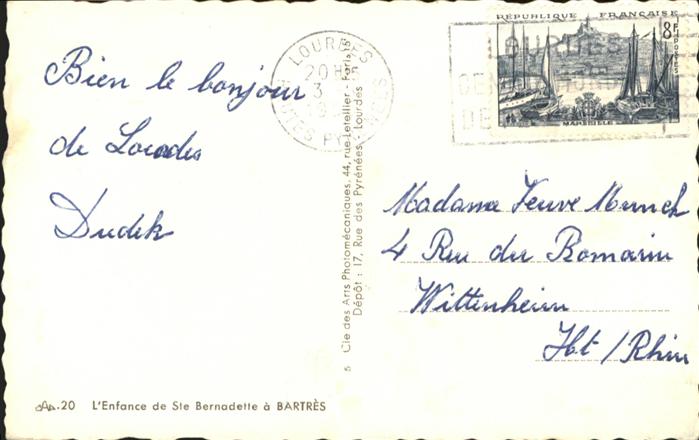 Bien le bonjour
de Lourdes
Dudek
LOURDES
20H
3
HAUTES PYRÉNÉES
RÉPUBLIQUE FRANÇAISE
8F
POSTES
MARSEILLE
LOURDES
DE
5 Cie des Arts Photomécaniques, 44, rue Letellier - Paris
Dépôt : 17, Rue des Pyrénées, Lourdes
Madame Veuve Munch
4 Rue du Romarin
Wittenheim
Ht/Rhin
A.20 L'Enfance de Ste Bernadette à BARTRÈS